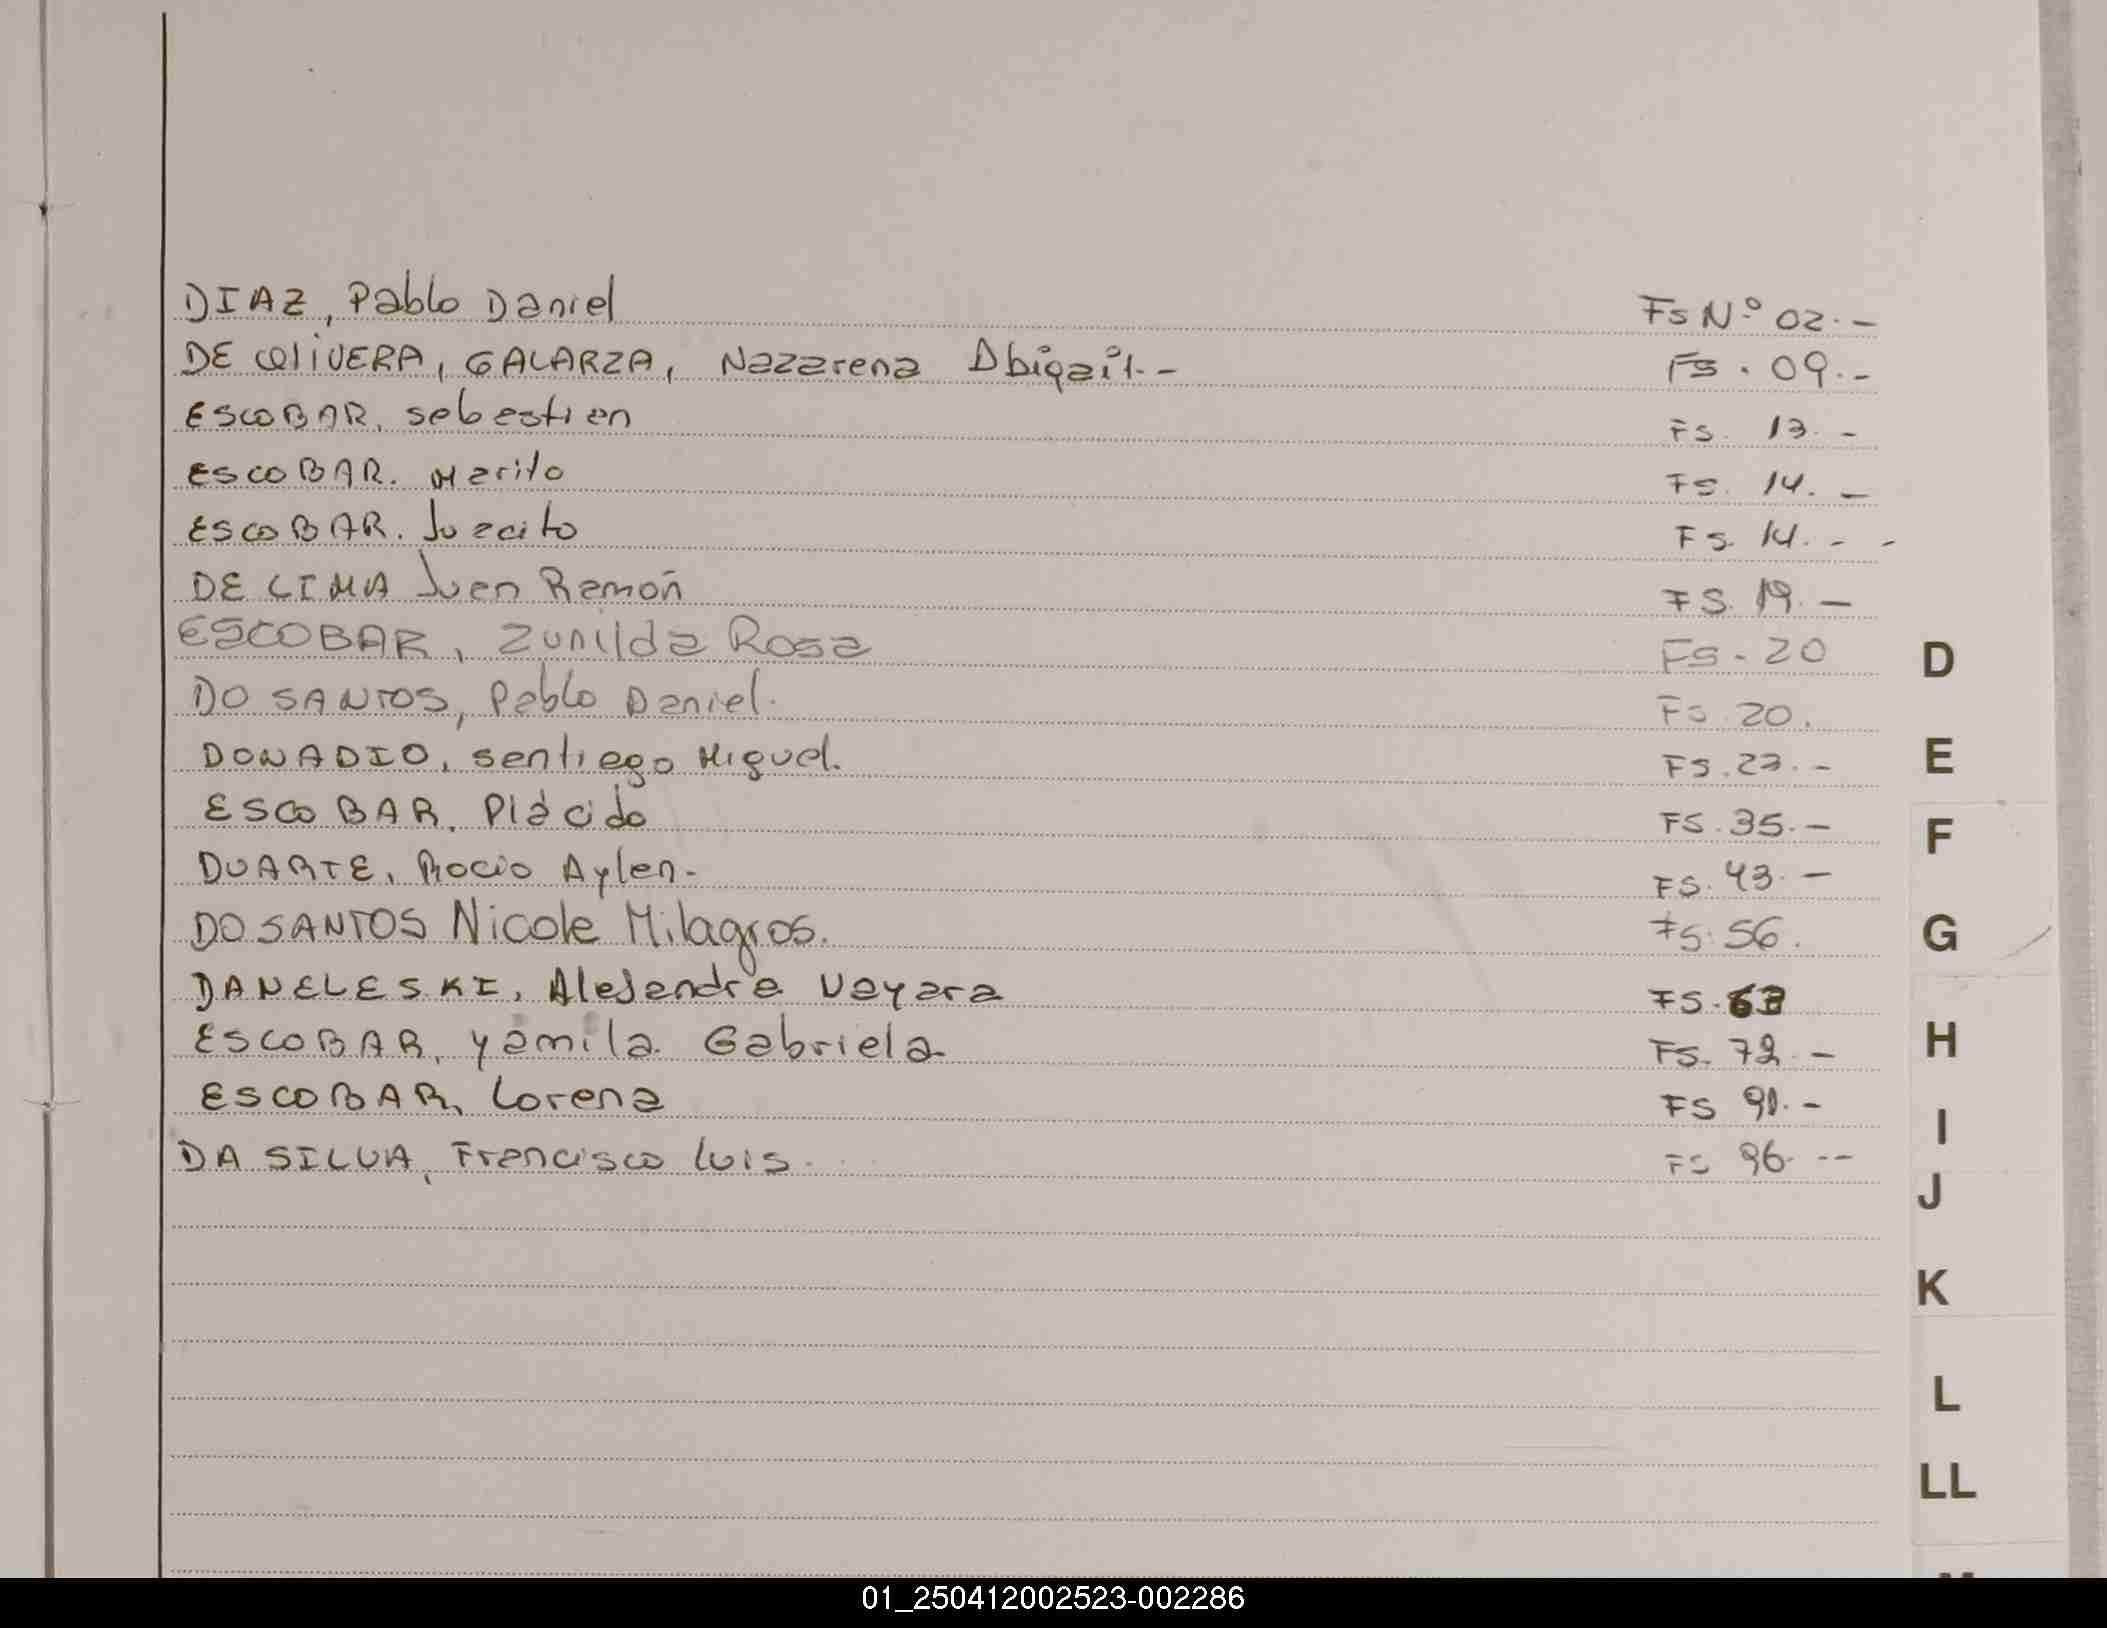 DIAZ, Pablo Daniel Fs Nº 02.-
DE OLIVERA, GALARZA, Nazarena Abigail.- Fs. 09.-
ESCOBAR, sebastian Fs. 13.-
ESCOBAR. Marito Fs. 14.-
ESCOBAR. Juacito Fs. 14.- -
DE LIMA Juan Ramón Fs. 19.-
ESCOBAR, Zunilda Rosa Fs. 20
DO SANTOS, Pablo Daniel. Fs. 20.
DONADIO, santiago Miguel. Fs. 23.-
ESCOBAR, Plácido FS. 35.-
DUARTE, Rocio Aylen- FS. 43.-
DO SANTOS Nicole Milagros. Fs. 56.
DANELESKI, Alejandra Nayara FS. 63
ESCOBAR, yamila Gabriela Fs. 72.-
ESCOBAR, Lorena FS 91.-
DA SILVA, Francisco Luis. FS 96.--
D
E
F
G
H
I
J
K
L
LL
01_250412002523-002286